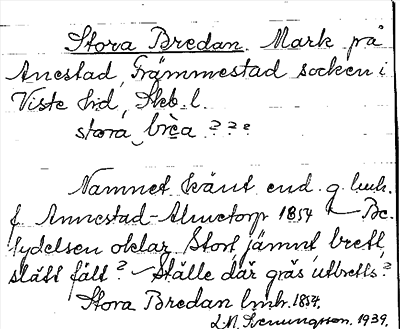 Stora Bredan. Mark på
Anestad, Främmestad socken i
Viste hd, Skb. l.
stora brèa ???
Namnet känt end. g. lmh.
f. Annestad-Almetorp 1854 — Be-
tydelsen oklar. Stort, jämnt, brett,
slätt fält? — Ställe där gräs utbretts?
Stora Bredan lmh. 1854.
1939.